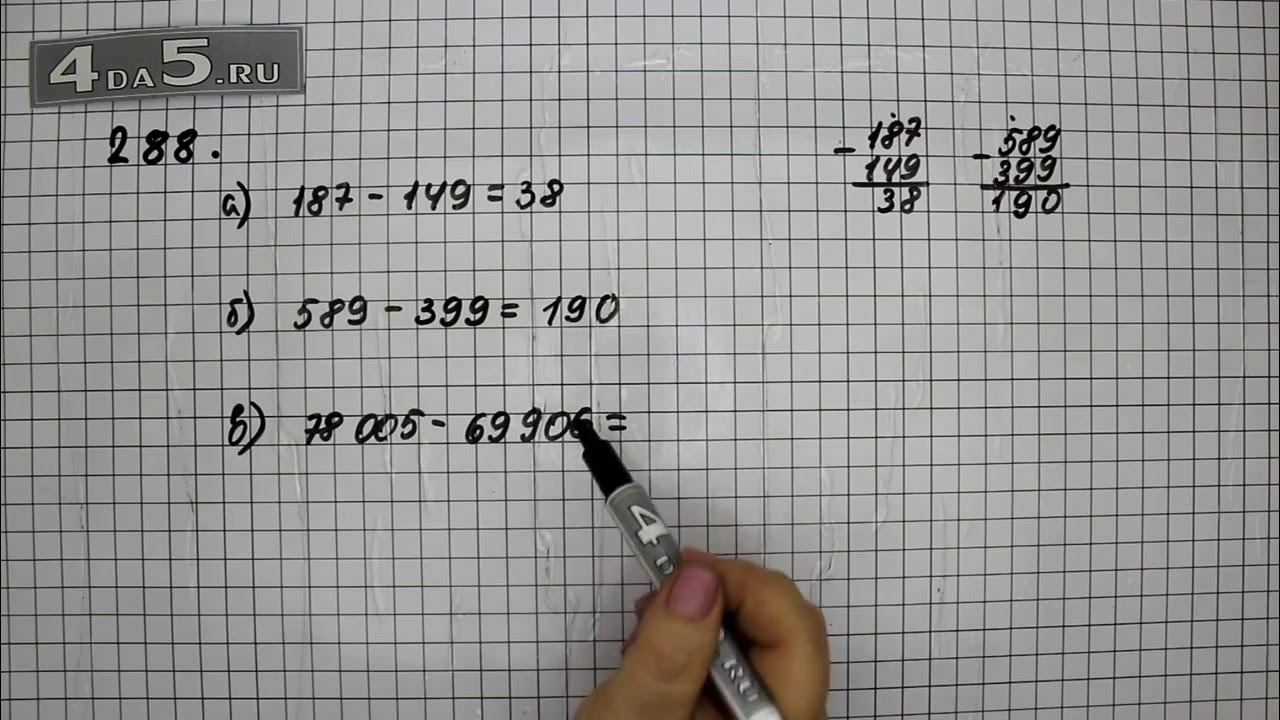 4DA5.RU
288.
а) 187 - 149 = 38
б) 589 - 399 = 190
в) 78 005 - 69 906 =
- 187
149
38
- 589
399
190
4 D
RU